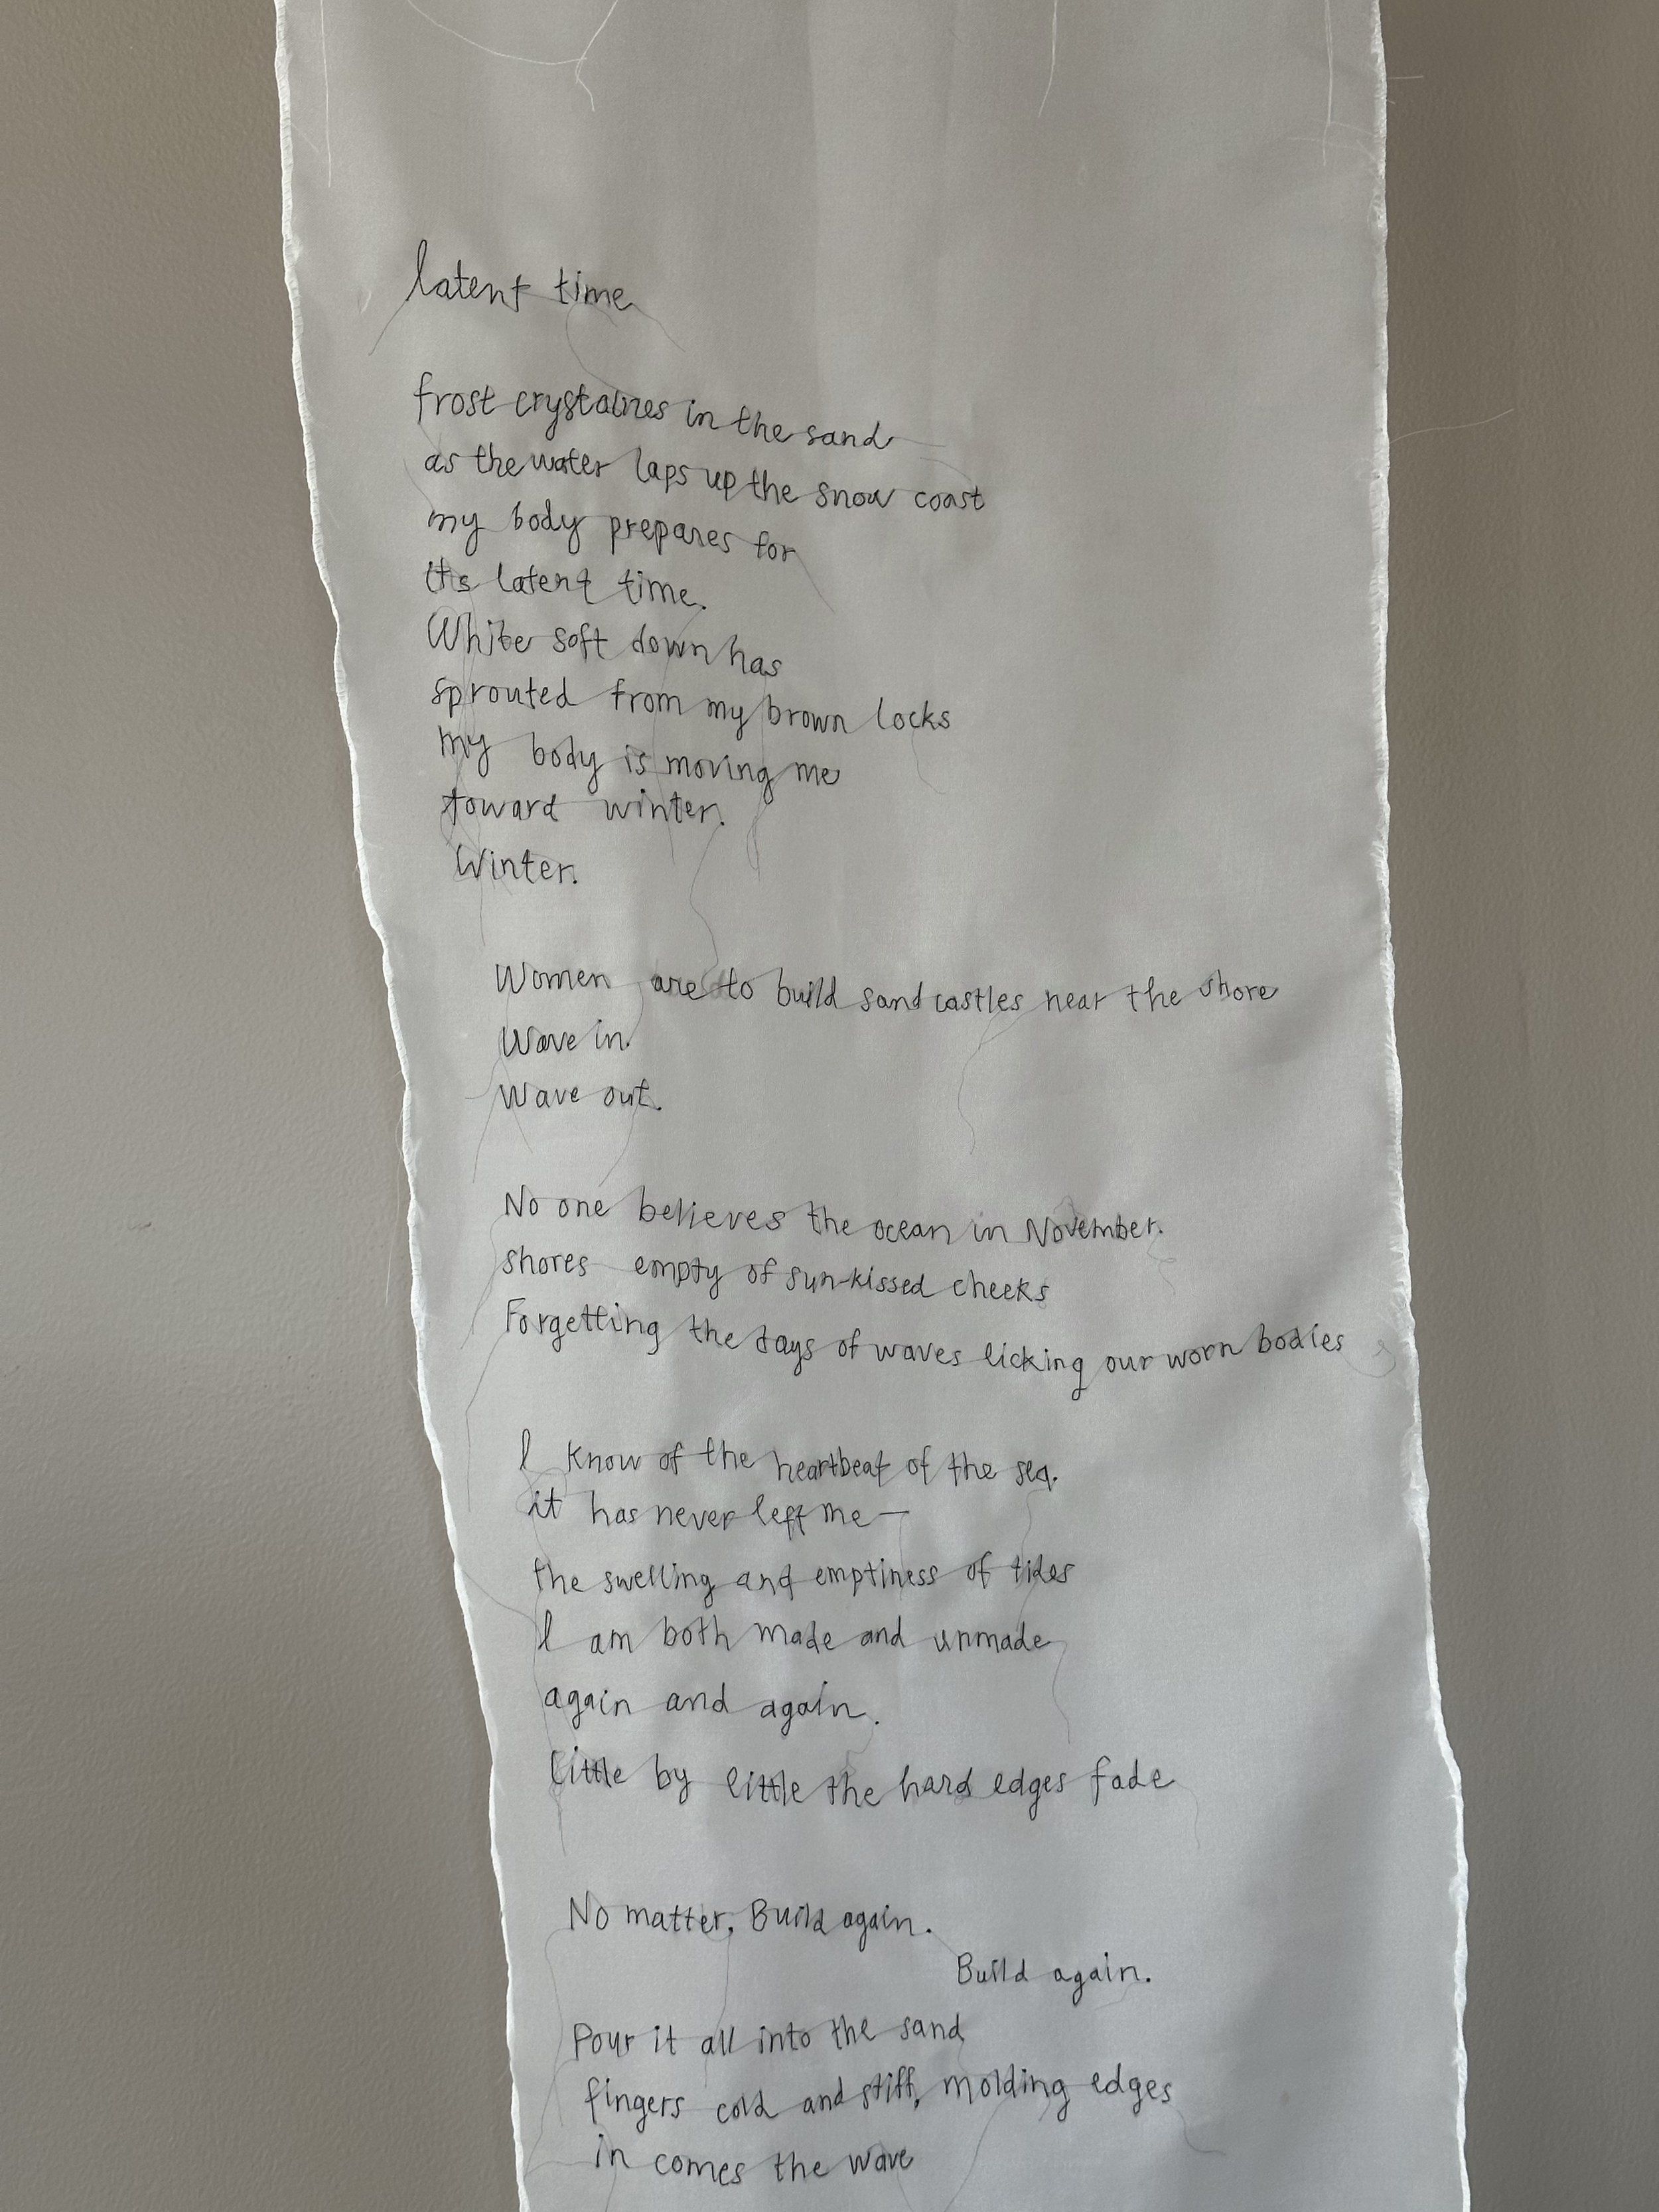 latent time
frost crystalizes in the sand
as the water laps up the snow coast
my body prepares for
its latent time.
White soft down has
sprouted from my brown locks
my body is moving me
toward winter.
Winter.
Women are to build sand castles near the shore
Wave in.
Wave out.
No one believes the ocean in November.
shores empty of sun-kissed cheeks
Forgetting the days of waves licking our worn bodies
I know of the heartbeat of the sea.
it has never left me—
the swelling and emptiness of tides
I am both made and unmade
again and again.
little by little the hard edges fade
No matter. Build again.
Build again.
Pour it all into the sand
fingers cold and stiff, molding edges
in comes the wave